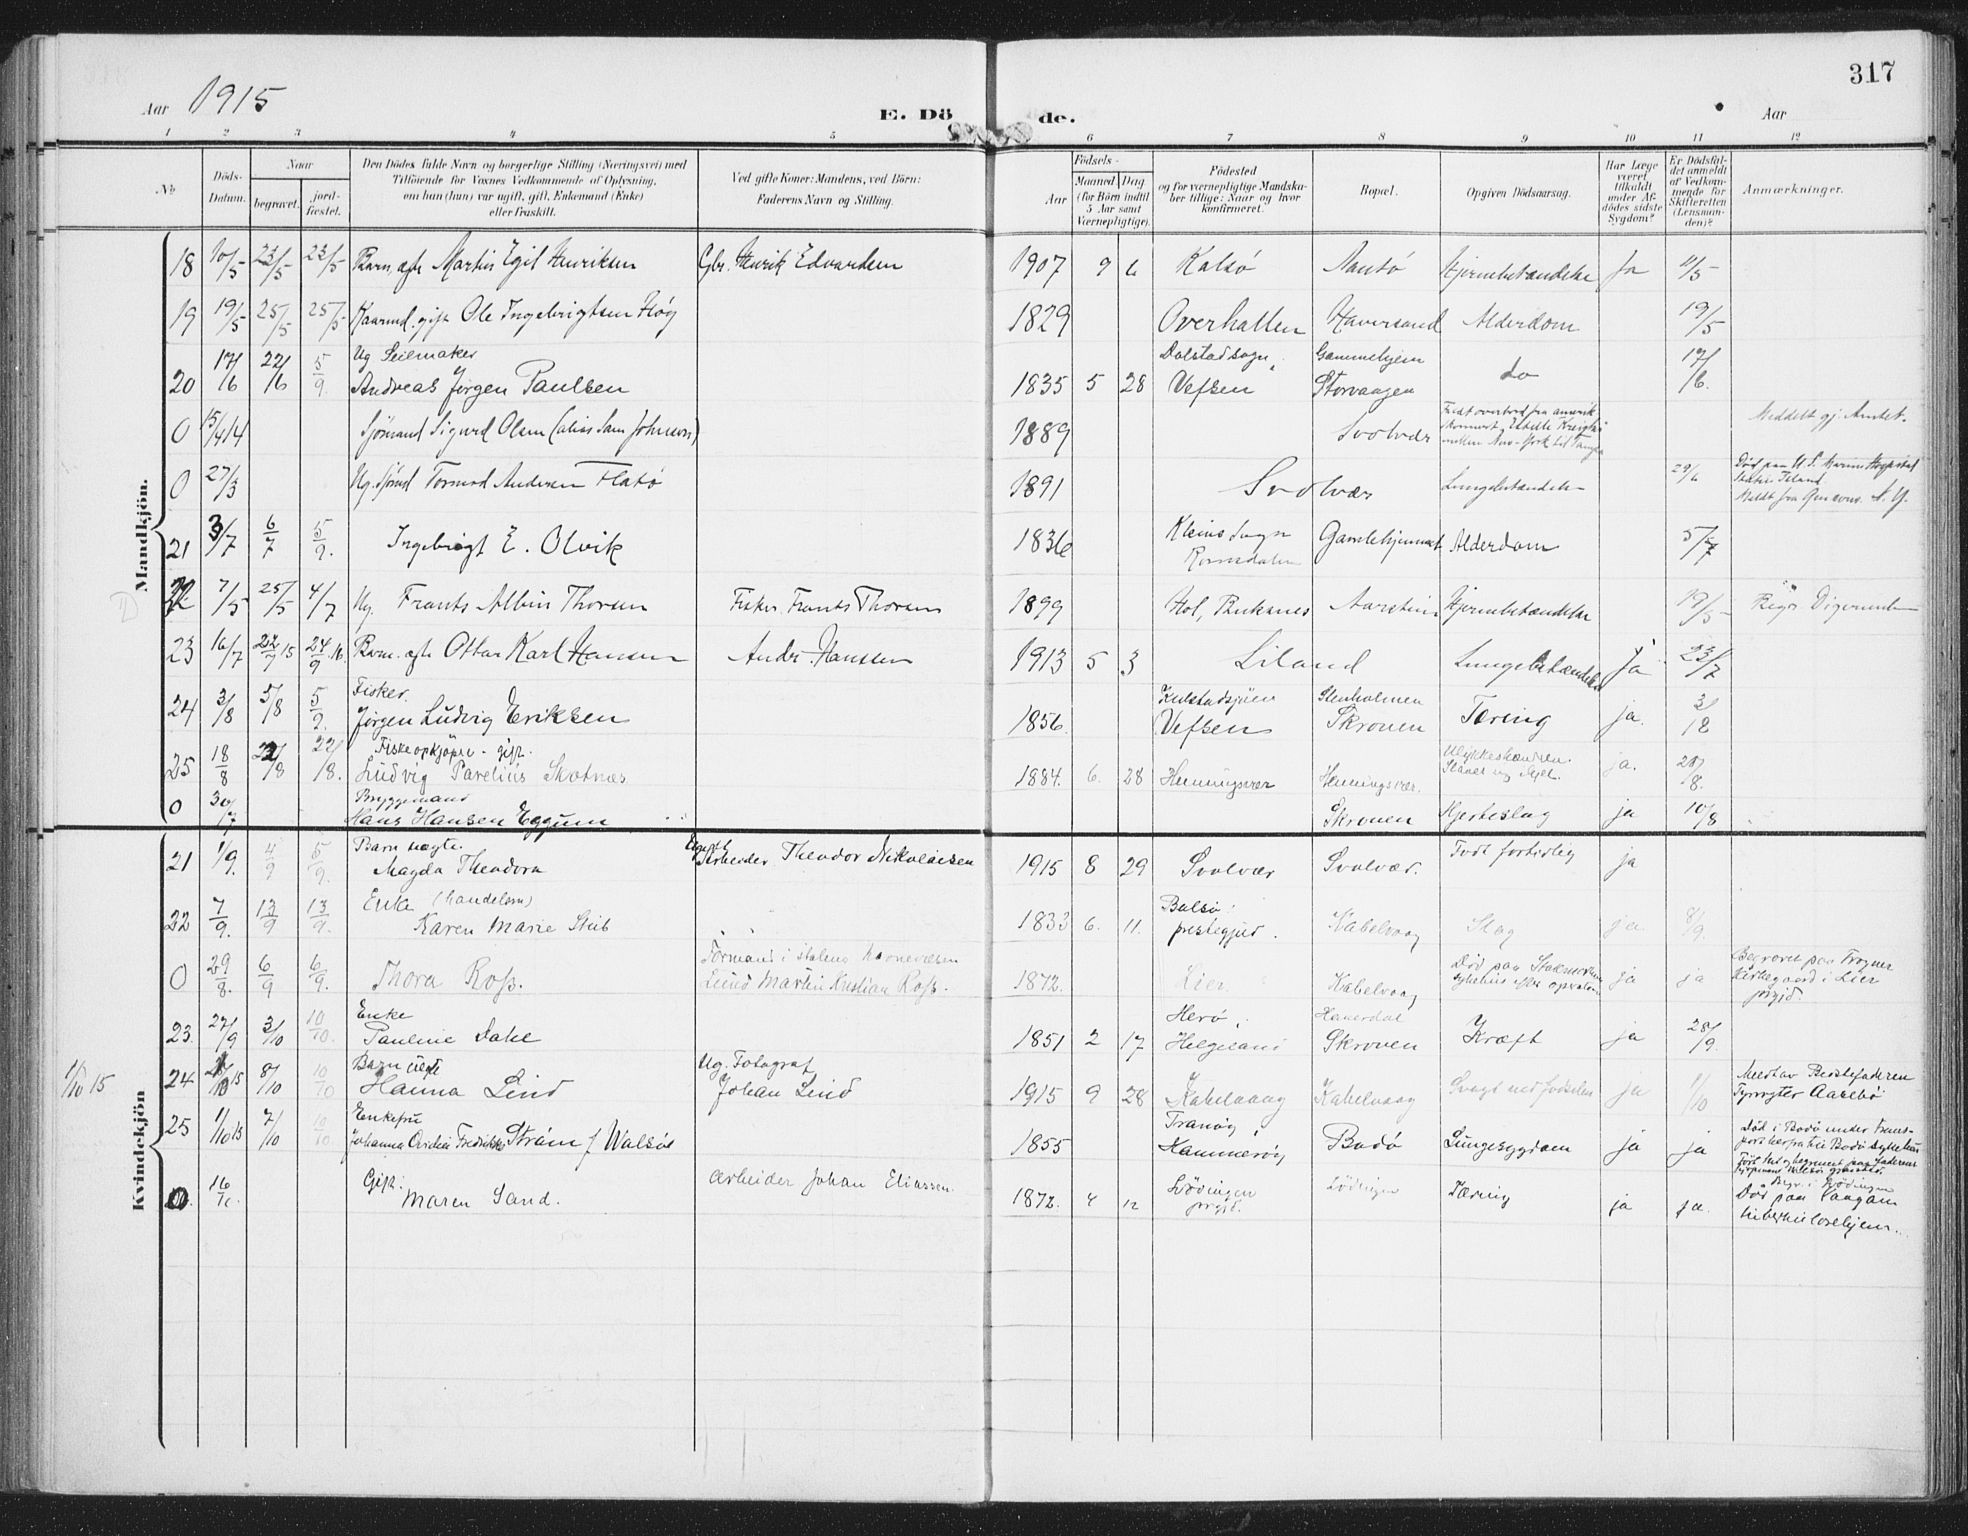 317
Aar 1915
E. Dö de.
Aar
1 2 3 4 5 6 7 8 9 10 11 12
No
Döds-Datum.
Naar
begravet.
jord-fæstet.
Den Dödes fulde Navn og borgerlige Stilling (Næringsvei) med
Tilföiende for Voxnes Vedkommende af Oplysning,
om han (hun) var ugift, gift, Enkemand (Enke)
eller fraskilt.
Ved gifte Koner: Mandens, ved Börn:
Faderens Navn og Stilling.
Födsels-
Aar
Maaned Dag
(for Börn indtil
5 Aar samt
Værnepligtige).
Födested
og for værnepligtige Mandska-
ber tillige: Naar og hvor
konfirmeret.
Bopæl.
Opgiven Dödsaarsag.
Har Læge
været
tilkaldt
under Af-
dödes sidste
Sygdom?
Er Dödsfal-
det anmeldt
af Vedkom-
mende for
Skifteretten
(Lensman-
den)?
Anmærkninger.
Mandkjön.
18 10/5 23/5 23/5 Barn, ægte Martin Egil Henriksen Gbr. Henrik Edvardsen 1907 9 6 Kalsö Hjernebetændelse Ja 11/5
19 19/5 25/5 25/5 Kaarmd. gift Ole Ingebrigtsen Høg 1829 Overhallen Haversand Alderdom 19/5
20 17/6 22/6 5/9 Ug Seilmaker
Andreas Jørgen Paulsen 1835 5 28 Dolstad sogn, Vefsen Gammelhjem Storvaagen do 17/6.
0 15/4 14 Sjømand Sigurd Olsen (alias Sam Johnson) 1889 Svolvær Meddelt gj. Amtet.
0 27/3 Ug. Sjømd Tormod Andersen Flatø 1891 Svolvær Lungebetændelse 29/6 Død paa U. S. Marine Hospital
21 3/7 6/7 5/9. Ingebrigt E. Olvik 1836 Kleive Sogn Romsdalen Gamlehjemmet Alderdom 5/7
22 7/5 25/5 4/7 Ug. Frants Albin Thorsen Fisker Frants Thorsen 1899 Hol, Buksnes Hjernebetændelse 19/5 Digermulen
23 16/7 22/7 15 24/9 16. Barn. ægte Ottar Karl Hansen Andr. Hanssen 1913 5 3 Liland Lungebetændelse Ja 23/7
24 3/8 5/8 5/9. Fisker.
Jørgen Ludvig Eriksen 1856. Kulstadsjøen Vefsen Stenholmen Skroven Tæring ja. 3/18
25 18/8 22/8 22/8. Fiskeopkjøper - gift.
Ludvig Parelius Skotnæs 1884. 6. 28 Henningsvær Henningsvær. ja. 20/8.
0 30/7 Bryggemand
Hans Hansen Eggum Skroven Hjerteslag ja 10/8
Kvindekjön
21 1/9. 4/9 5/9. Barn uægte.
Magda Theodora Arbeider Theodor Nikolaisen 1915 8 29 Svolvær Svolvær. Født fortidlig ja
22 7/9. 13/9 13/9. Enke (handelsm)
Karen Marie Stub 1833 6. 11. Balsø prestegjeld. Kabelvaag Slag ja. 8/9.
0 29/8. 6/9 6/9. Thora Ross. Formand i statens havnevæsen
Martin Kristian Ross. 1872. Lier. Kabelvaag ja ja Begravet paa Frogner
Kirkegaard i Lier
prgjd.
23. 27/9 3/10 10/10. Enke
Pauline Dahl 1851 2 17 Herø, Helgeland Skroven Kræft ja 28/9.
1/10 15 24 8/10 10/10 Barn uægte
Hanna Lind Ug. Fotograf
Johan Lind 1915 9 28 Kabelvaag Kabelvaag Svagt ved fødselen ja 1/10 Meldt av Bedstefaderen
25 1/10 15 7/10 10/10 Enkefru
Strøm f Walsøe 1855 Tranøy, Hammerøy Bodø Lungesygdom ja ja Død i Bodø under Trans-
0. 16/10 Gift.
Maren Sand. Arbeider Johan Eliassen. 1872. 4 12 Lødingen prgjd. Lødingen Tæring ja ja. Begr. i Lødingen
Død paa Vaagan
tuberkulosehjem.